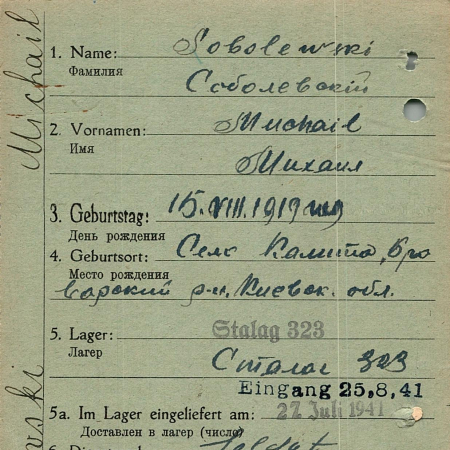 Michail
1. Name: Sobolewski
Фамилия
Соболевский
2. Vornamen: Michail
Имя
Михаил
3. Geburtstag: 15.VIII.1919
День рождения
4. Geburtsort: Село Калита, Бро
Место рождения
варский р-н, Киевск. обл.
5. Lager: Stalag 323
Лагер
Сталаг 323
Eingang 25,8,41
5a. Im Lager eingeliefert am: 27 Juli 1941
Доставлен в лагер (число)
Soldat